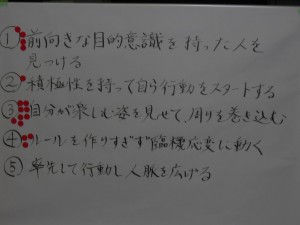 ① 前向きな目的意識を持った人を
見つける
② 積極性を持って自ら行動をスタートする
③ 自分が楽しむ姿を見せて、周りを巻き込む
④ ルールを作りすぎず臨機応変に動く
⑤ 率先して行動し人脈を広げる